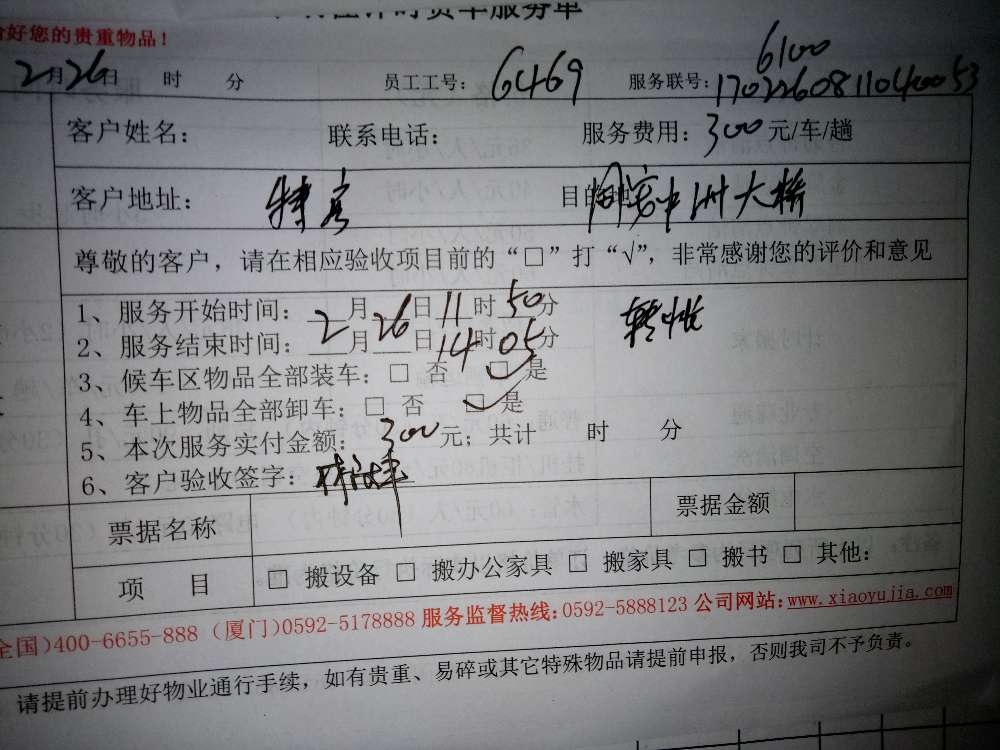 计时货车服务单
好您的贵重物品！
2月26日 时 分 员工工号：6469 服务联号：1702260811040053
6100
客户姓名： 联系电话： 服务费用：300元/车/趟
客户地址： 特房 目的地 同安中洲大桥
尊敬的客户，请在相应验收项目前的“□”打“√”，非常感谢您的评价和意见
1、服务开始时间：2月26日11时50分 转收
2、服务结束时间：月 日14时05分
3、候车区物品全部装车：□ 否 ☑ 是
4、车上物品全部卸车：□ 否 ☑ 是
5、本次服务实付金额：300元；共计 时 分
6、客户验收签字：
票据名称 票据金额
项 目 □ 搬设备 □ 搬办公家具 □ 搬家具 □ 搬书 □ 其他：
全国)400-6655-888 (厦门)0592-5178888 服务监督热线:0592-5888123 公司网站:www.xiaoyujia.com
请提前办理好物业通行手续，如有贵重、易碎或其它特殊物品请提前申报，否则我司不予负责。